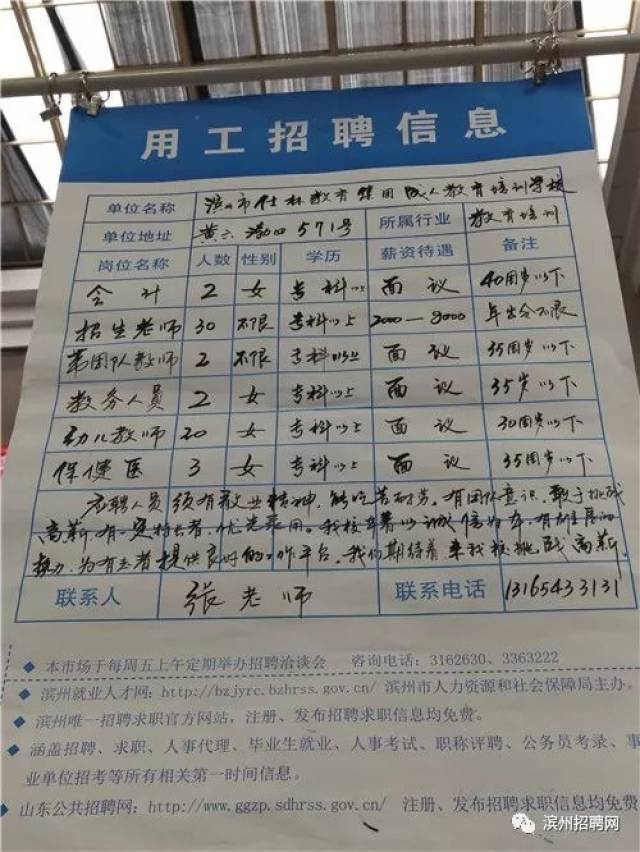 用工招聘信息
单位名称 滨州市仕林教育集团成人教育培训学校
单位地址 黄六渤四571号 所属行业 教育培训
岗位名称 人数 性别 学历 薪资待遇 备注
会计 2 女 专科以上 面议 40周岁以下
招生老师 30 不限 专科以上 2000—8000 年龄不限
团队教师 2 不限 专科以上 面议 35周岁以下
教务人员 2 女 专科以上 面议 35岁以下
幼儿教师 20 女 专科以上 面议 30周岁以下
保健医 3 女 专科以上 面议 35周岁以下
应聘人员须有敬业精神,能吃苦耐劳。有团队意识、敢于挑战
高薪。有一定特长者,优先录用。我校本着以诚信为本,有雄厚的
势力,为有志者提供良好的工作平台。我们期待着来我校挑战高薪。
联系人 张老师 联系电话 13165433131
◆ 本市场于每周五上午定期举办招聘洽谈会 咨询电话:3162630、3363222
◆ 滨州就业人才网:http://bzjyrc.bzhrss.gov.cn/ 滨州市人力资源和社会保障局主办。
◆ 滨州唯一招聘求职官方网站,注册、发布招聘求职信息均免费。
◆ 涵盖招聘、求职、人事代理、毕业生就业、人事考试、职称评聘、公务员考录、事
业单位招考等所有相关第一时间信息。
◆ 山东公共招聘网:http://www.ggzp.sdhrss.gov.cn/ 注册、发布招聘求职信息均免费
滨州招聘网